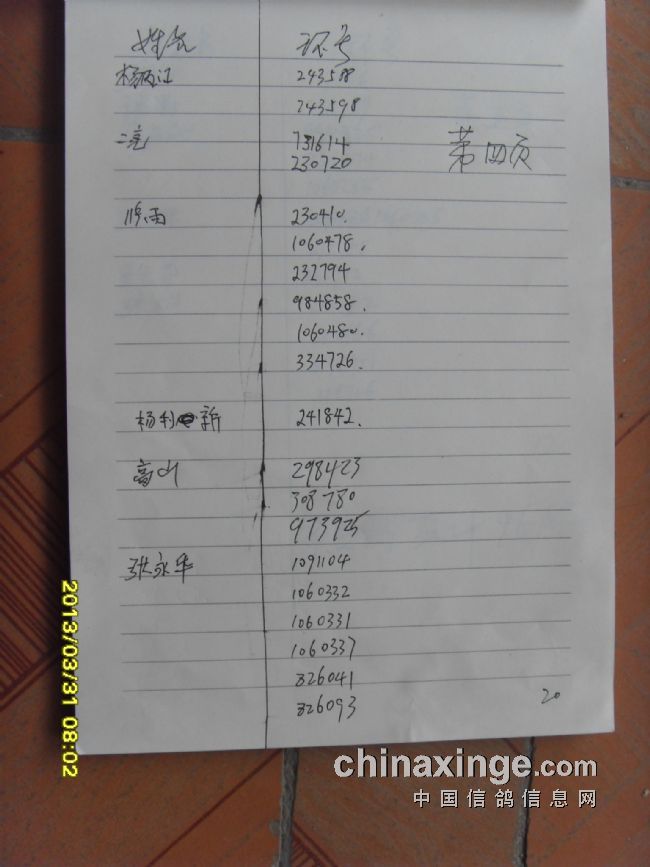 姓名 环号
杨丙江 243518
243598
二亮 731614
230720
第四页
顺雨 230410.
1060478.
232794
984858.
1060480.
334726.
杨利 新 241842.
高山 298423
308780
973925
张永华 1091104
1060332
1060331
1060337
326041
326093
20
2013/03/31 08:02
chinaxinge.com
中国信鸽信息网